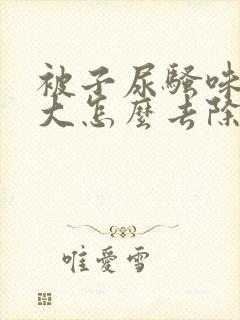 被子尿騷味
大怎麼去除
唯愛雪